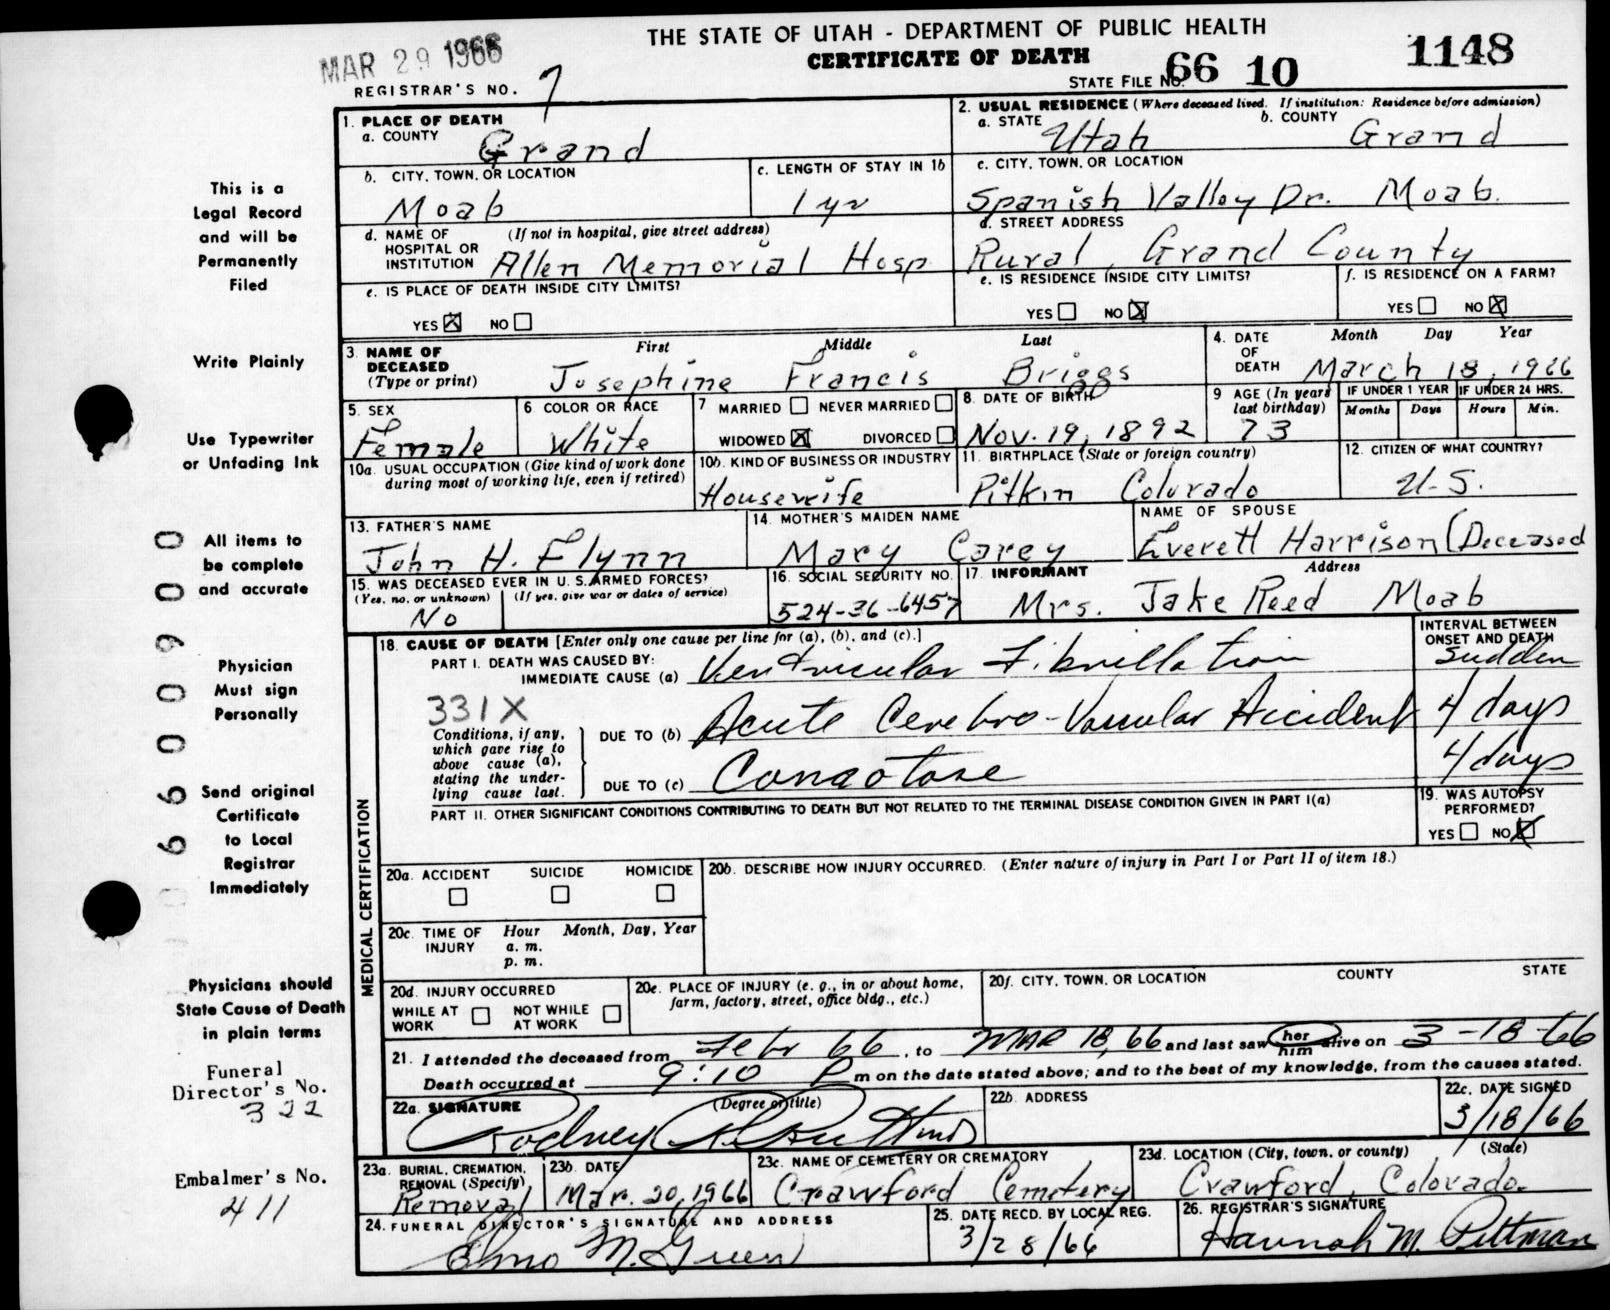 THE STATE OF UTAH - DEPARTMENT OF PUBLIC HEALTH
CERTIFICATE OF DEATH
MAR 29 1966
STATE FILE NO. 66 10 1148
REGISTRAR'S NO. 7
1. PLACE OF DEATH
a. COUNTY Grand
2. USUAL RESIDENCE (Where deceased lived. If institution: Residence before admission)
a. STATE Utah b. COUNTY Grand
b. CITY, TOWN, OR LOCATION Moab
c. LENGTH OF STAY IN 1b 1 yr
c. CITY, TOWN, OR LOCATION
Spanish Valley Dr. Moab.
d. NAME OF HOSPITAL OR INSTITUTION (If not in hospital, give street address)
Allen Memorial Hosp
d. STREET ADDRESS
Rural, Grand County
e. IS PLACE OF DEATH INSIDE CITY LIMITS?
YES X NO
e. IS RESIDENCE INSIDE CITY LIMITS?
YES NO X
f. IS RESIDENCE ON A FARM?
YES NO X
3. NAME OF DECEASED (Type or print)
First Middle Last
Josephine Francis Briggs
4. DATE OF DEATH Month Day Year
March 18, 1966
5. SEX
Female
6 COLOR OR RACE
White
7 MARRIED NEVER MARRIED
WIDOWED X DIVORCED
8. DATE OF BIRTH
Nov. 19, 1892
9 AGE (In years last birthday)
73
IF UNDER 1 YEAR IF UNDER 24 HRS.
Months Days Hours Min.
10a. USUAL OCCUPATION (Give kind of work done during most of working life, even if retired)
10b. KIND OF BUSINESS OR INDUSTRY
Housewife
11. BIRTHPLACE (State or foreign country)
Pitkin Colorado
12. CITIZEN OF WHAT COUNTRY?
U.S.
13. FATHER'S NAME
John H. Flynn
14. MOTHER'S MAIDEN NAME
Mary Carey
NAME OF SPOUSE
Everett Harrison (Deceased
15. WAS DECEASED EVER IN U.S. ARMED FORCES?
(Yes, no, or unknown) (If yes, give war or dates of service)
No
16. SOCIAL SECURITY NO.
524-36-6457
17. INFORMANT Address
Mrs. Jake Reed Moab
18. CAUSE OF DEATH [Enter only one cause per line for (a), (b), and (c).]
INTERVAL BETWEEN ONSET AND DEATH
PART I. DEATH WAS CAUSED BY:
IMMEDIATE CAUSE (a) Ventricular Fibrillation Sudden
331X
Conditions, if any, which gave rise to above cause (a), stating the underlying cause last.
DUE TO (b) Acute Cerebro-Vascular Accident 4 days
DUE TO (c) 4 days
PART II. OTHER SIGNIFICANT CONDITIONS CONTRIBUTING TO DEATH BUT NOT RELATED TO THE TERMINAL DISEASE CONDITION GIVEN IN PART I(a)
19. WAS AUTOPSY PERFORMED?
YES NO X
MEDICAL CERTIFICATION
20a. ACCIDENT SUICIDE HOMICIDE
20b. DESCRIBE HOW INJURY OCCURRED. (Enter nature of injury in Part I or Part II of item 18.)
20c. TIME OF INJURY Hour Month, Day, Year
a. m.
p. m.
20d. INJURY OCCURRED
WHILE AT WORK NOT WHILE AT WORK
20e. PLACE OF INJURY (e. g., in or about home, farm, factory, street, office bldg., etc.)
20f. CITY, TOWN, OR LOCATION COUNTY STATE
21. I attended the deceased from Febr 66, to MAR 18, 66 and last saw her him alive on 3-18-66
Death occurred at 9:10 P m on the date stated above; and to the best of my knowledge, from the causes stated.
22a. SIGNATURE (Degree or title)
Rodney
22b. ADDRESS
22c. DATE SIGNED
3/18/66
23a. BURIAL, CREMATION, REMOVAL (Specify)
Removal
23b. DATE
Mar. 20, 1966
23c. NAME OF CEMETERY OR CREMATORY
Crawford Cemetery
23d. LOCATION (City, town, or county) (State)
Crawford, Colorado.
24. FUNERAL DIRECTOR'S SIGNATURE AND ADDRESS
Elmo M. Green
25. DATE RECD. BY LOCAL REG.
3/28/66
26. REGISTRAR'S SIGNATURE
Hannah M. Pittman
This is a
Legal Record
and will be
Permanently
Filed
Write Plainly
Use Typewriter
or Unfading Ink
All items to
be complete
and accurate
Physician
Must sign
Personally
Send original
Certificate
to Local
Registrar
Immediately
Physicians should
State Cause of Death
in plain terms
Funeral
Director's No.
322
Embalmer's No.
411